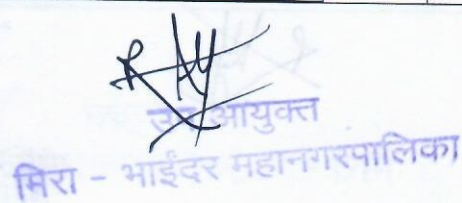 उप आयुक्त
मिरा - भाईंदर महानगरपालिका